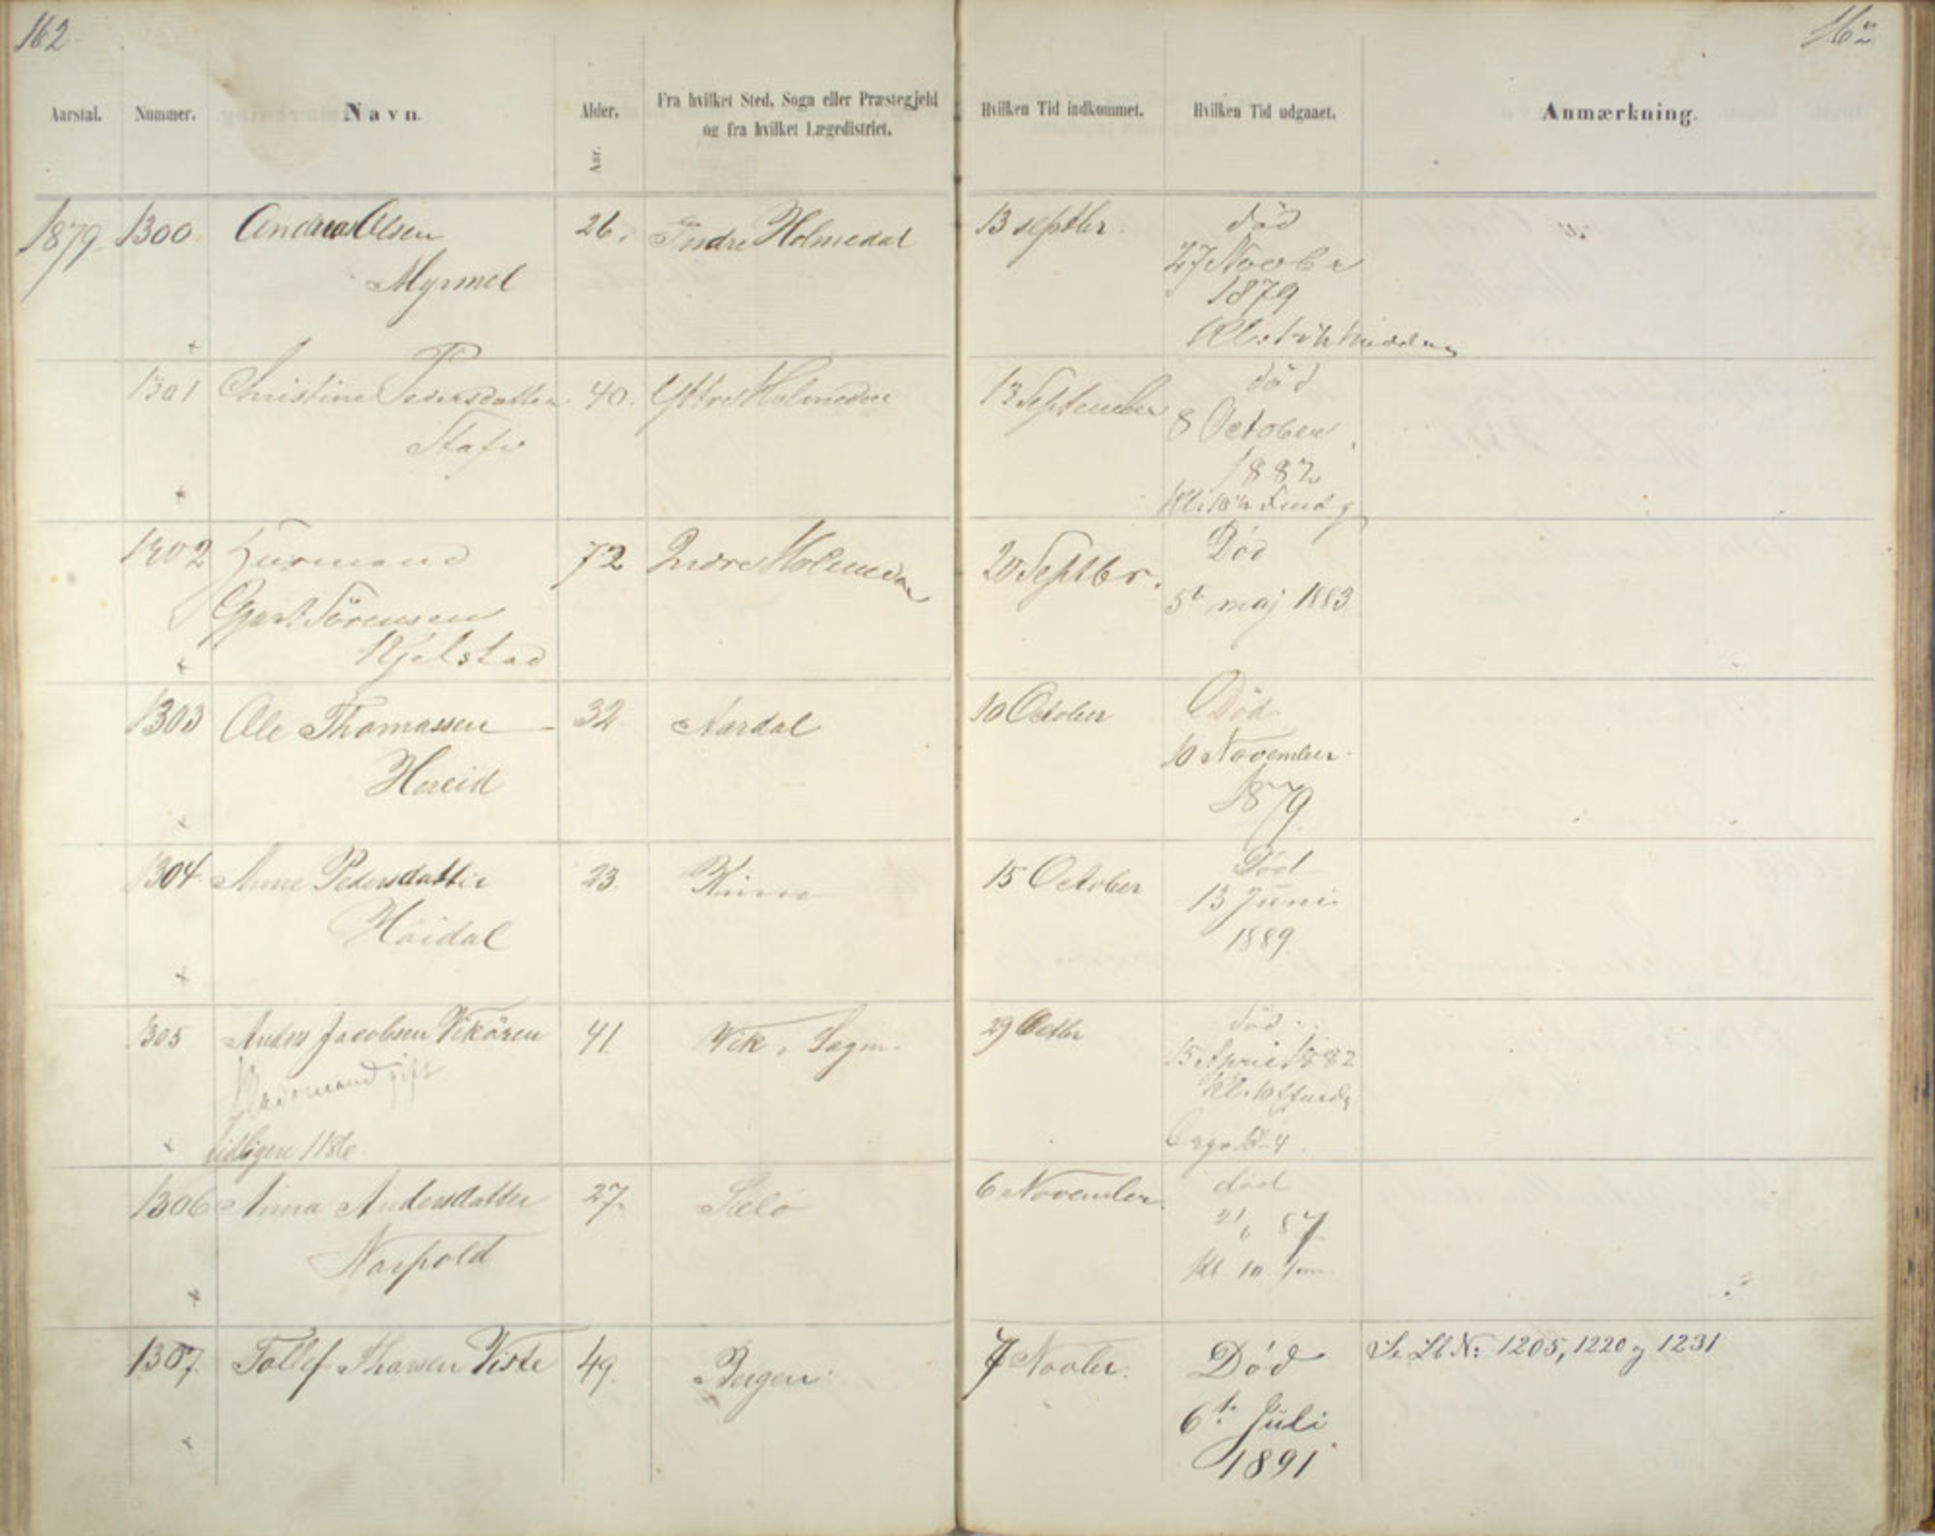 162
162
Aarstal. Nummer. Navn. Alder. Fra hvilket Sted, Sogn eller Præstegjeld Hvilken Tid indkommet. Hvilken Tid udgaaet. Anmærkning.
og fra hvilket Lægedistrict.
Aar.
1879 1300 Andreas Olsen 26. Indre Holmedal 13 septbr. død
Myrmel 27 Novbr
1879
1301 Christine Pedersdatter 40. Yttre Holmedal 13 September død
8 October
1882
1302 72 Indre Holmedal 20 Septbr. Død
Gjert Sörensen 5t maj 1883
Kjelstad
1303 Ole Thomassen 32 Aardal 10 October Død
Hereid 10 November
1879
1304 Anne Pedersdatter 23 Kinn 15 October Død
Høidal 13 Juni
1889
1305 Anders Jacobsen Vikören 41 Vik, Sogn. 29 Octbr død
gift 15 April 1882
Kl. 10
tidligere 1186
1306 Anna Andersdatter 27. Selø 6 November død
Kl 10
1307 Tollef Thorsen Viste 49. Bergen 7 Novbr. Død Se Lb N: 1205, 1220 og 1231
6t. Juli
1891